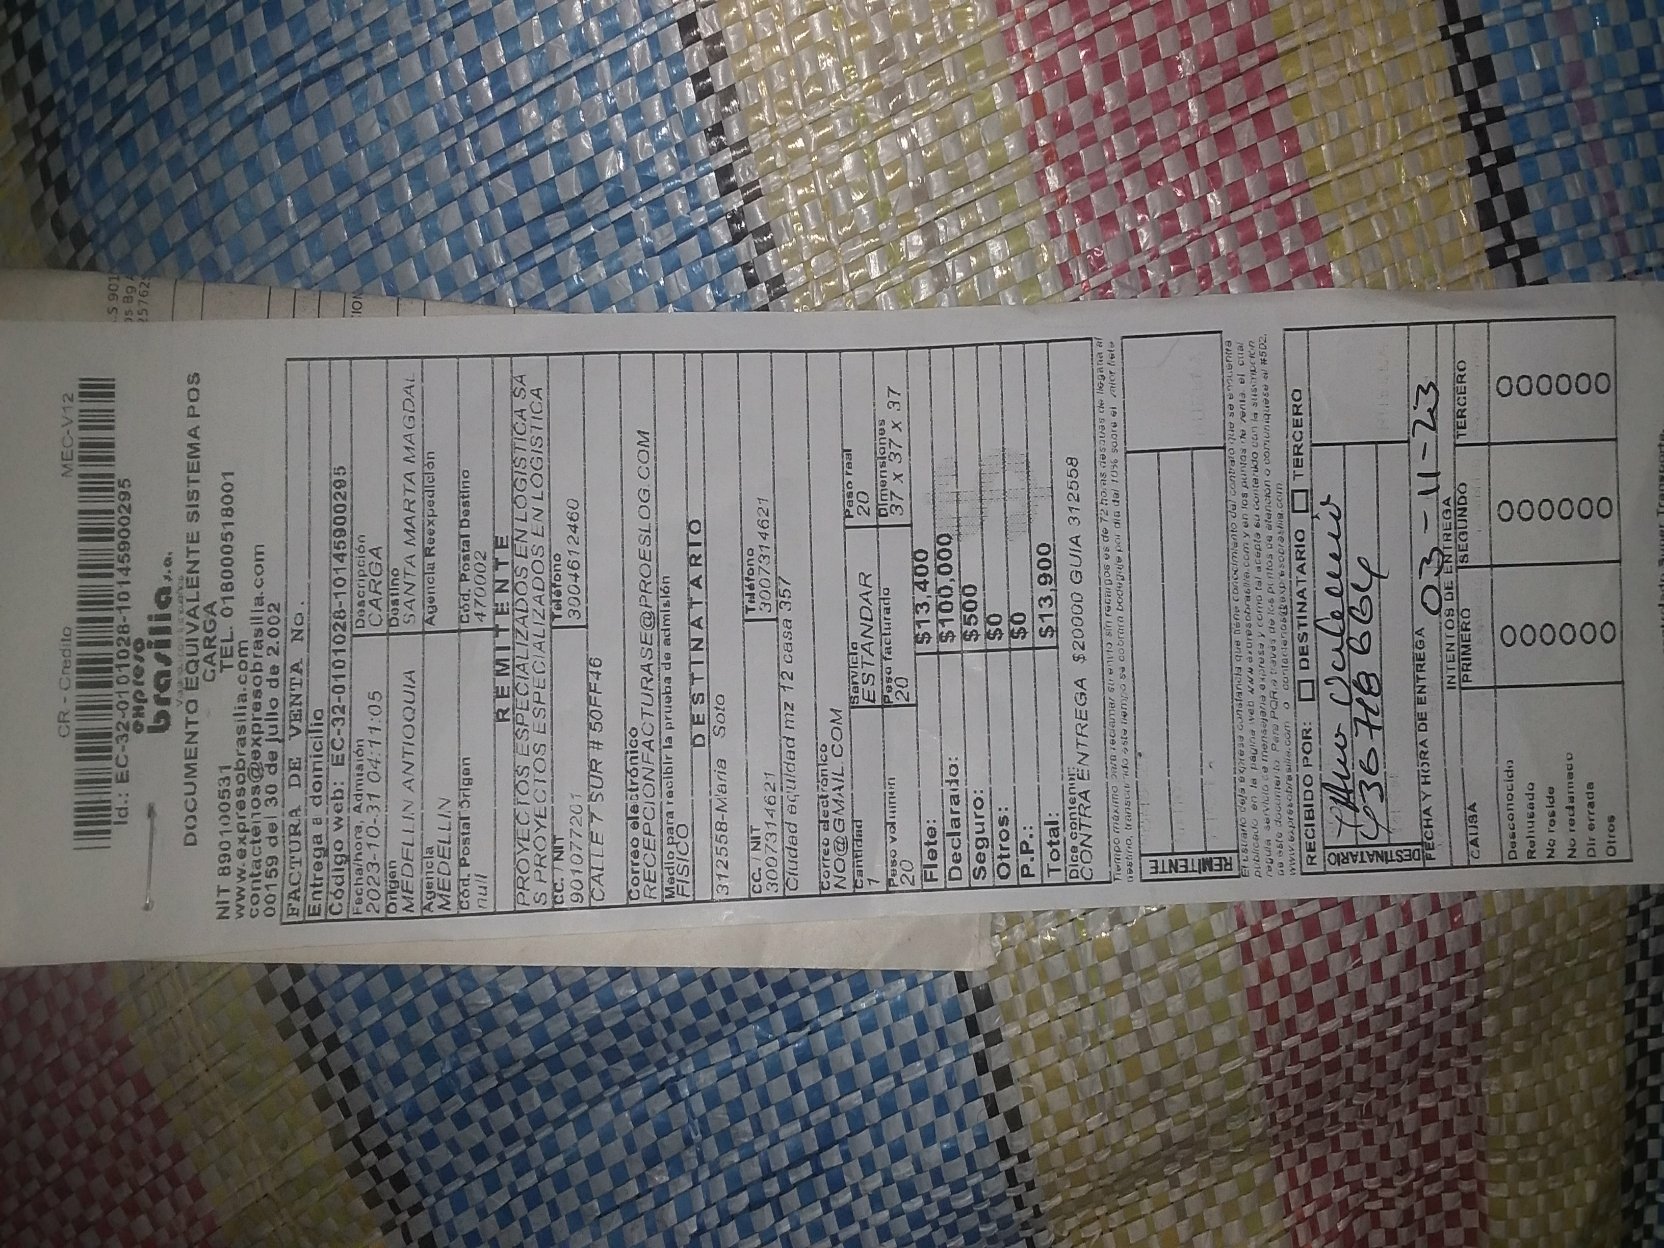 CR - Credito MEC-V12
Id.: EC-32-0101028-10145900295
expreso
brasilia s.a.
DOCUMENTO EQUIVALENTE SISTEMA POS
CARGA
NIT 890100531 TEL. 018000518001
www.expresobrasilia.com
contactenos@expresobrasilia.com
00159 del 30 de julio de 2.002
FACTURA DE VENTA No.
Entrega a domicilio
Código web: EC-32-0101028-10145900295
Fecha/hora Admisión Descripción
2023-10-31 04:11:05 CARGA
Origen Destino
MEDELLIN ANTIOQUIA SANTA MARTA MAGDAL
Agencia Agencia Reexpedición
MEDELLIN
Cód. Postal Origen Cód. Postal Destino
null 470002
REMITENTE
PROYECTOS ESPECIALIZADOS EN LOGISTICA SA
S PROYECTOS ESPECIALIZADOS EN LOGISTICA
CC. / NIT Teléfono
901077201 3004612460
CALLE 7 SUR # 50FF46
Correo electrónico
RECEPCIONFACTURASE@PROESLOG.COM
Medio para recibir la prueba de admisión
FISICO
DESTINATARIO
312558-Maria Soto
CC. NIT Teléfono
3007314621 3007314621
Ciudad equidad mz 12 casa 357
Correo electrónico
NO@GMAIL.COM
Cantidad Servicio Peso real
1 ESTANDAR 20
Peso volumen Peso facturado Dimensiones
20 20 37 x 37 x 37
Flete: $13,400
Declarado: $100,000
Seguro: $500
Otros: $0
P.P.: $0
Total: $13,900
Dice contener:
CONTRA ENTREGA $20000 GUIA 312558
Tiempo máximo para reclamar su envío sin recargos es de 72 horas después de llegada al
destino, transcurrido este tiempo se cobrará bodegaje por día del 10% sobre el valor flete
REMITENTE
El usuario deja expresa constancia que tiene conocimiento del contrato que se encuentra
publicado en la página web www.expresobrasilia.com y en los puntos de venta, el cual
regula servicio de mensajería expresa y como tal acepta su contenido con la suscripción
de este documento. Para PQR a través de los puntos de atención o comuníquese al #502,
www.expresobrasilia.com o contactenos@expresobrasilia.com
RECIBIDO POR: DESTINATARIO TERCERO
DESTINATARIO
FECHA Y HORA DE ENTREGA 03-11-23
INTENTOS DE ENTREGA
CAUSA PRIMERO SEGUNDO TERCERO
Desconocido
Rehusado
No reside
No reclamado
Dir errada
Otros